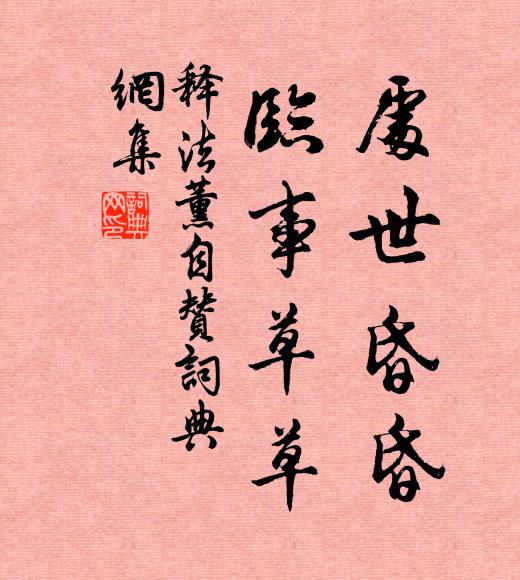 處世昏昏
臨事草草
释法薰自赞詞典
網集
詞典
网印